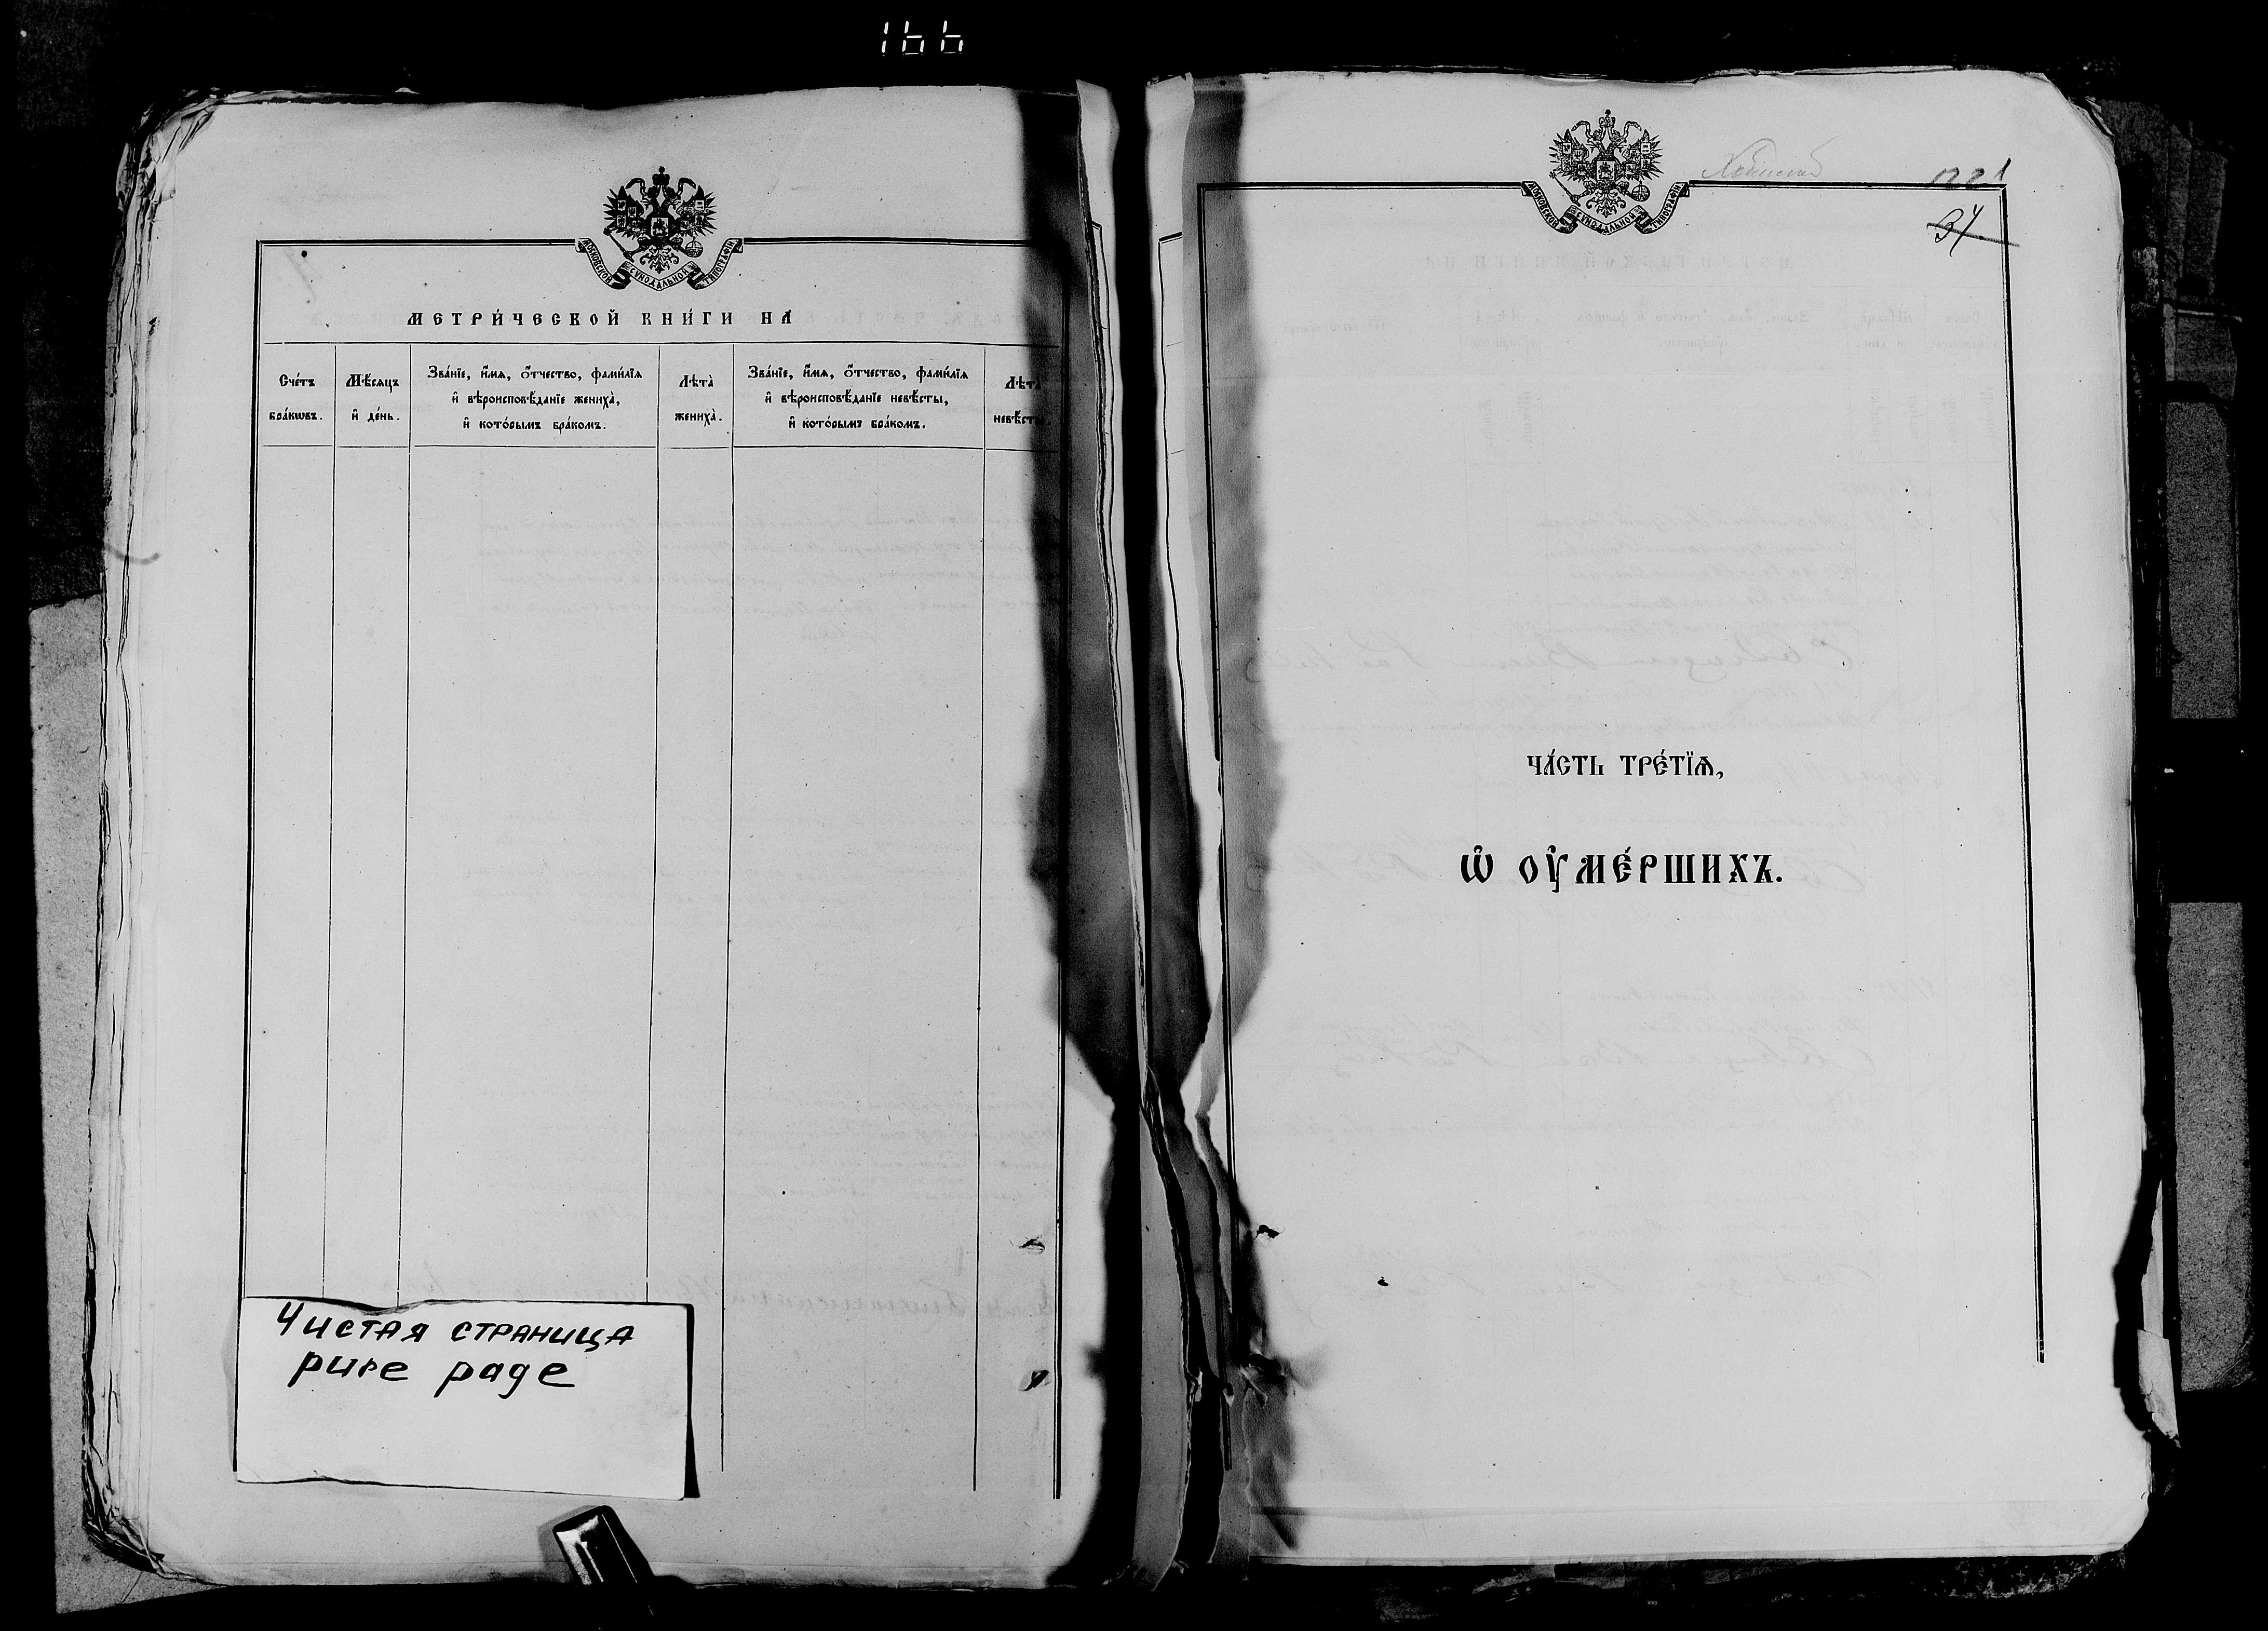 166
МОСКОВСКОЙ СѴНОДАЛЬНОЙ ТИПОГРАФІИ
МЕТРИ́ЧЕСКОЙ КНИ́ГИ НА̀
Сче́тъ
бра́кѡвъ.
Мѣ́сѧцъ
и҆ де́нь.
Зва́нїе, и҆́мѧ, ѻ҆́тчество, фами́лїѧ
и҆ вѣроисповѣ́данїе жениха̀,
и҆ кото́рымъ бра́комъ.
Лѣта̀
жениха̀.
Зва́нїе, и҆́мѧ, ѻ҆́тчество, фами́лїѧ
и҆ вѣроисповѣ́данїе невѣ́сты,
и҆ кото́рымъ бра́комъ.
Лѣта̀
невѣ́сты.
Чистая страница
pure page
МОСКОВСКОЙ СѴНОДАЛЬНОЙ ТИПОГРАФІИ
ЧА́СТЬ ТРЕ́ТЇѦ,
Ѡ҆ ОУ҆МЕ́РШИХЪ.